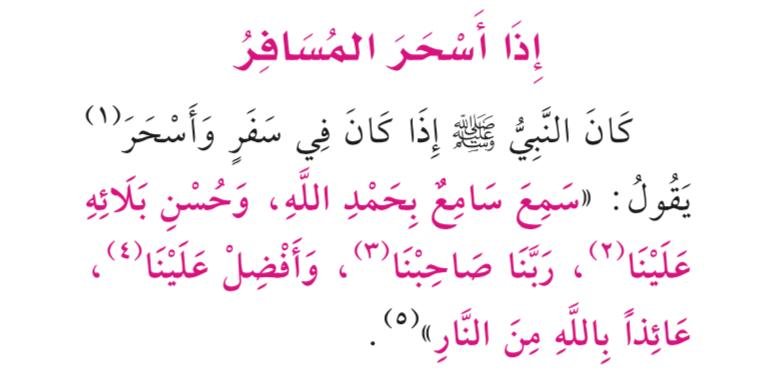 إِذَا أَسْحَرَ المُسَافِرُ
كَانَ النَّبِيُّ ﷺ إِذَا كَانَ فِي سَفَرٍ وَأَسْحَرَ(١)
يَقُولُ: «سَمِعَ سَامِعٌ بِحَمْدِ اللَّهِ، وَحُسْنِ بَلَائِهِ
عَلَيْنَا(٢)، رَبَّنَا صَاحِبْنَا(٣)، وَأَفْضِلْ عَلَيْنَا(٤)،
عَائِذاً بِاللَّهِ مِنَ النَّارِ»(٥).